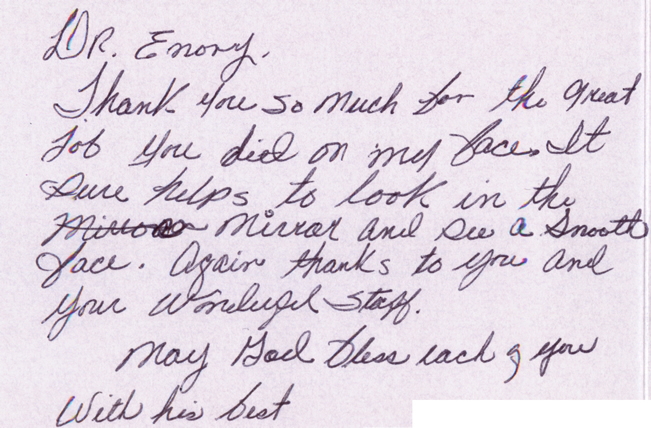 DR. Emory.
Thank you so much for the great
Job you did on my face. It
Sure helps to look in the
Mirror Mirror and see a smooth
face. Again thanks to you and
your wonderful staff.
May God bless each of you
With his best